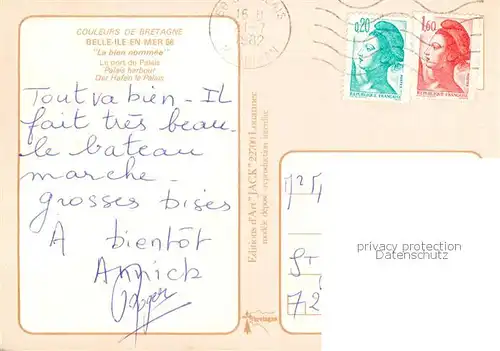 COULEURS DE BRETAGNE
BELLE-ILE EN MER 56
"La bien nommée"
Le port de Palais
Palais harbour
Der Hafen te Palais
Tout va bien - Il
fait très beau -
le bateau
marche -
grosses bises
À bientôt
Annick
Roger
Editions d'Art "JACK" 22700 Louannec
modèle déposé reproduction interdite
Bretagne
15 H
1982
0,20
REPUBLIQUE FRANÇAISE
1,60
REPUBLIQUE FRANÇAISE
privacy protection
Datenschutz
St
72